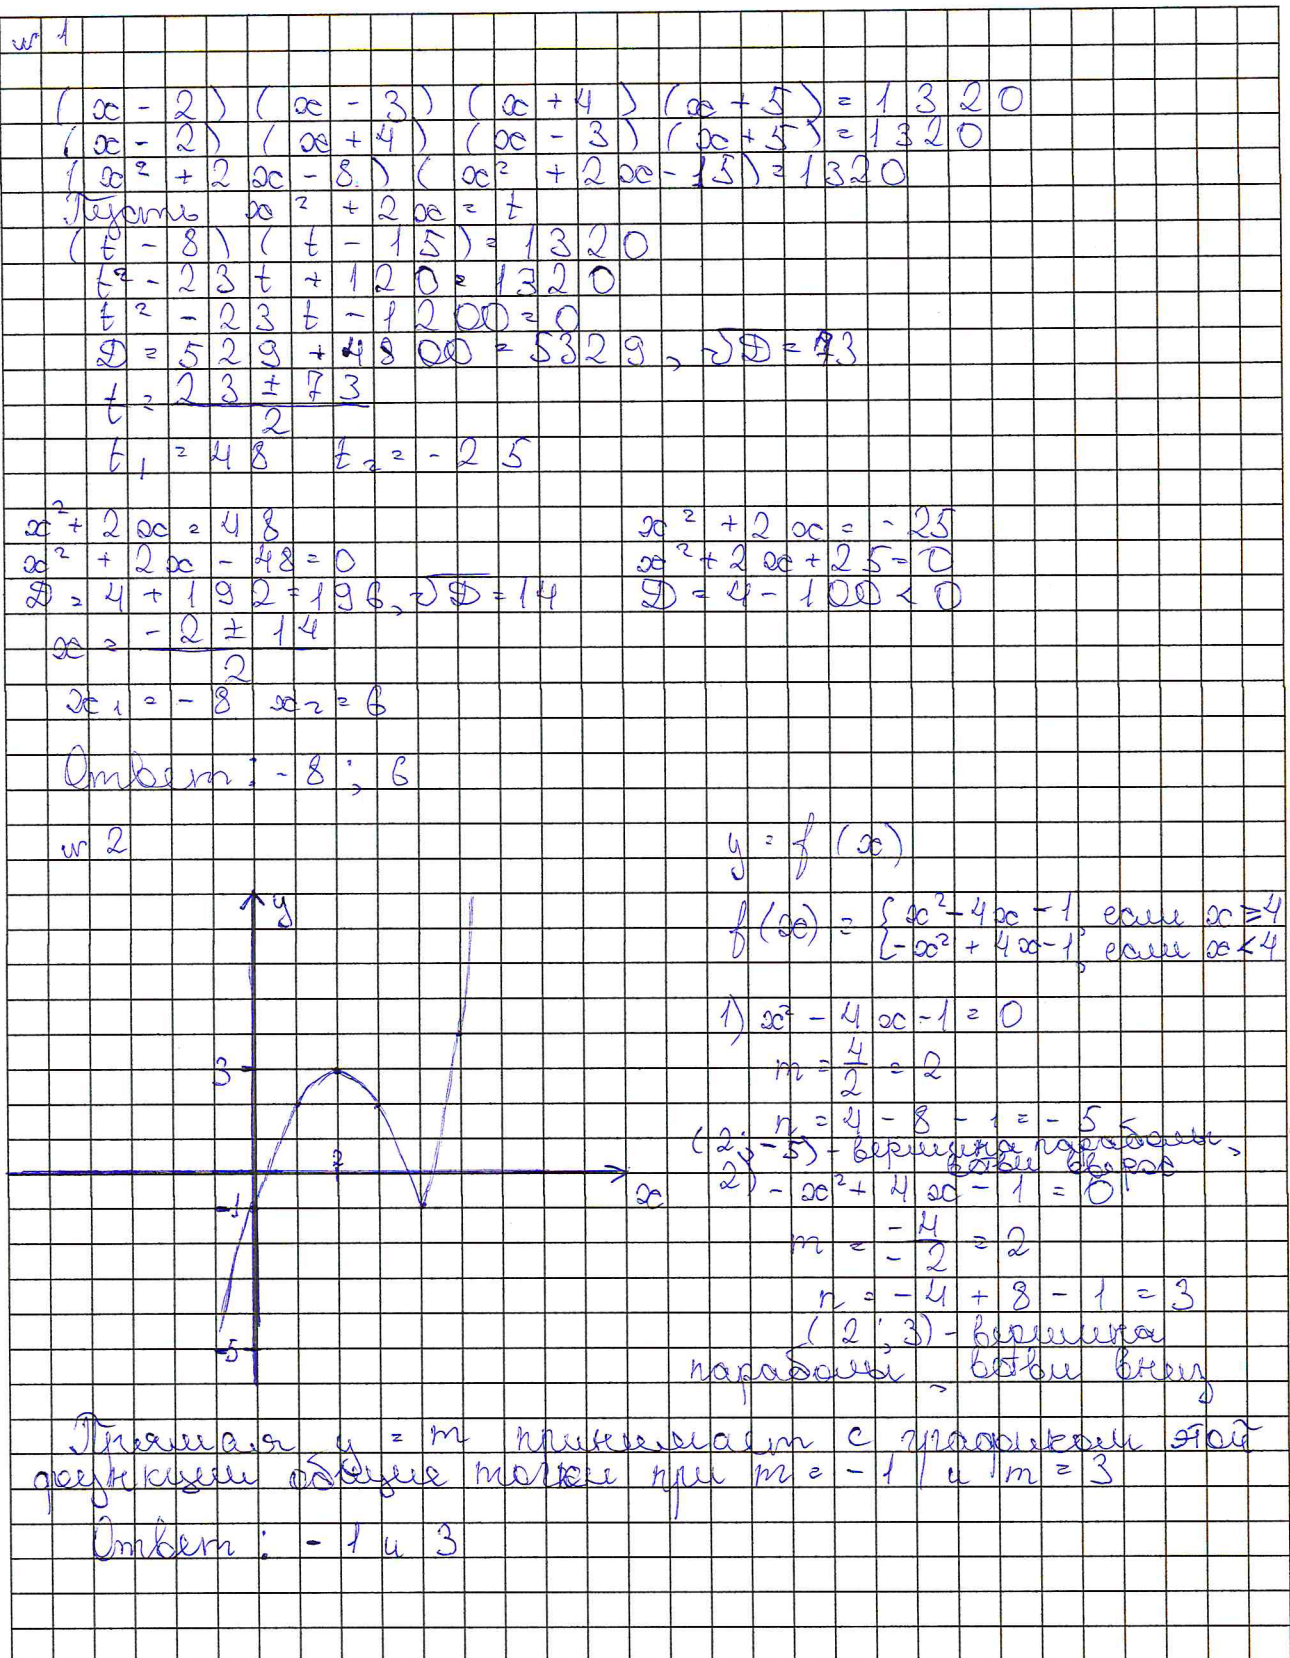 № 1
(x - 2) (x - 3) (x + 4) (x + 5) = 1320
(x - 2) (x + 4) (x - 3) (x + 5) = 1320
(x² + 2x - 8) (x² + 2x - 15) = 1320
Пусть x² + 2x = t
(t - 8) (t - 15) = 1320
t² - 23t + 120 = 1320
t² - 23t - 1200 = 0
D = 529 + 4800 = 5329, √D = 73
t = (23 ± 73)/2
t₁ = 48 t₂ = -25
x² + 2x = 48
x² + 2x - 48 = 0
D = 4 + 192 = 196, √D = 14
x = (-2 ± 14)/2
x₁ = -8 x₂ = 6
x² + 2x = -25
x² + 2x + 25 = 0
D = 4 - 100 < 0
Ответ: -8; 6
№ 2
y
3
2
x
-1
-5
y = f(x)
f(x) = { x² - 4x - 1, если x ≥ 4
{ -x² + 4x - 1, если x < 4
1) x² - 4x - 1 = 0
m = 4/2 = 2
n = 4 - 8 - 1 = -5
(2; -5) - вершина параболы,
ветви вверх
2) -x² + 4x - 1 = 0
m = -4/-2 = 2
n = -4 + 8 - 1 = 3
(2; 3) - вершина
параболы, ветви вниз
Прямая y = m принимает с графиком этой
функции общие точки при m = -1 и m = 3
Ответ: -1 и 3